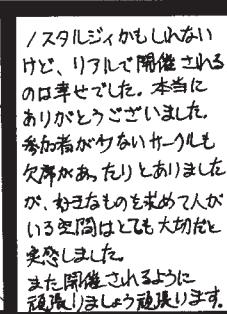 ノスタルジィかもしれない
けど、リアルで開催される
のは幸せでした。本当に
ありがとうございました。
参加者が少ないサークルも
欠席があったりとありました
が、好きなものを求めて人が
いる空間はとても大切だと
実感しました。
また開催されるように
頑張りましょう頑張ります。